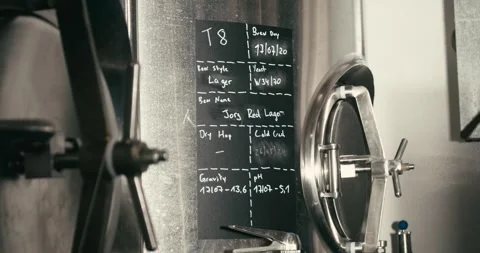 T8
Brew Day
17/07/20
Beer Style
Lager
Yeast
W34/70
Beer Name
Jors Red Lager
Dry Hop
-
Cold Crash
Gravity
17/07-13,6
pH
17/07-5,1